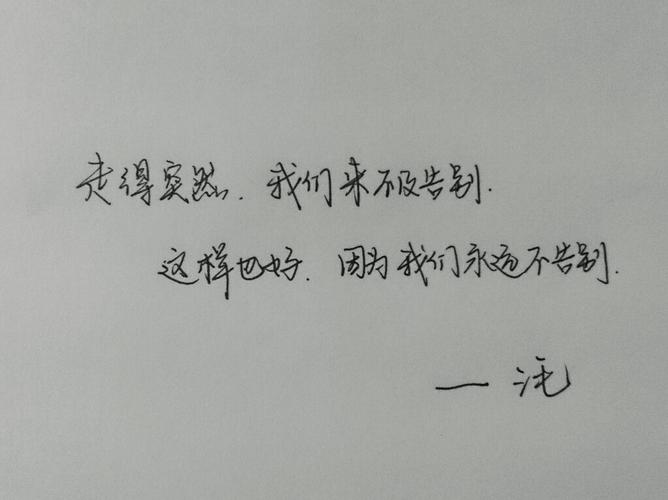 走得突然.我们来不及告别.
这样也好.因为我们永远不告别.
—三毛